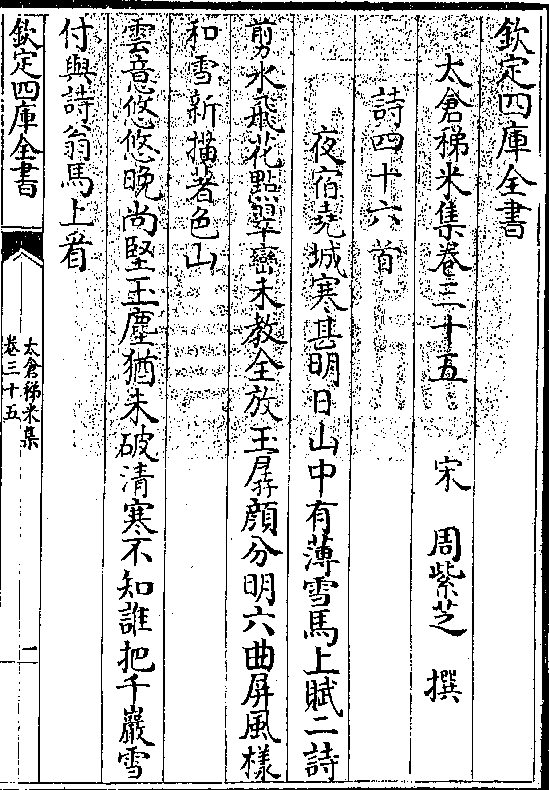 欽定四庫全書
太倉稊米集卷三十五　宋　周紫芝　撰
詩四十六首
夜宿堯城寒甚明日山中有薄雪馬上賦二詩
剪水飛花點翠巒未教全放玉孱顔分明六曲屏風様
和雪新描著色山
雲意悠悠晩尚堅玉塵猶未破清寒不知誰把千巖雪
付與詩翁馬上看
欽定四庫全書
太倉稊米集
卷三十五
一